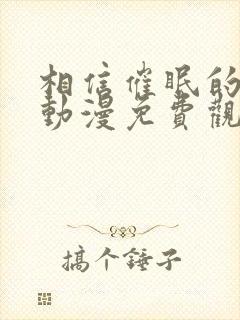 相信催眠的
動漫免費觀
搞个锤子